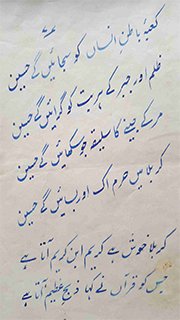 کعبۂ باطنِ انساں کو سجائیں گے حسین
ظلم اور جبر کے ہر بت کو گرائیں گے حسین
مر کے جینے کا سلیقہ جو سکھائیں گے حسین
کربلا میں حرم اک اور بسائیں گے حسین
کربلا خوش ہے کریم ابنِ کریم آتا ہے
جس کو قرآں نے کہا ذبحِ عظیم آتا ہے